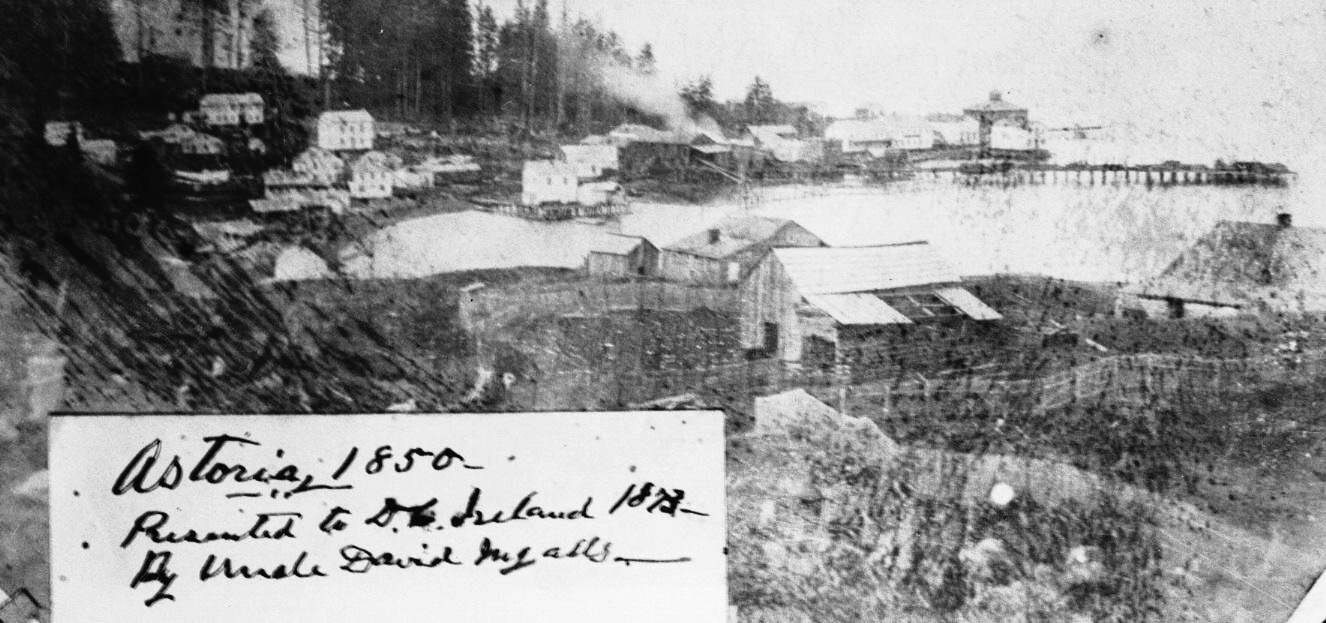 Astoria, 1850-
Presented to D.C. Ireland 1873-
By Uncle David Ingalls-